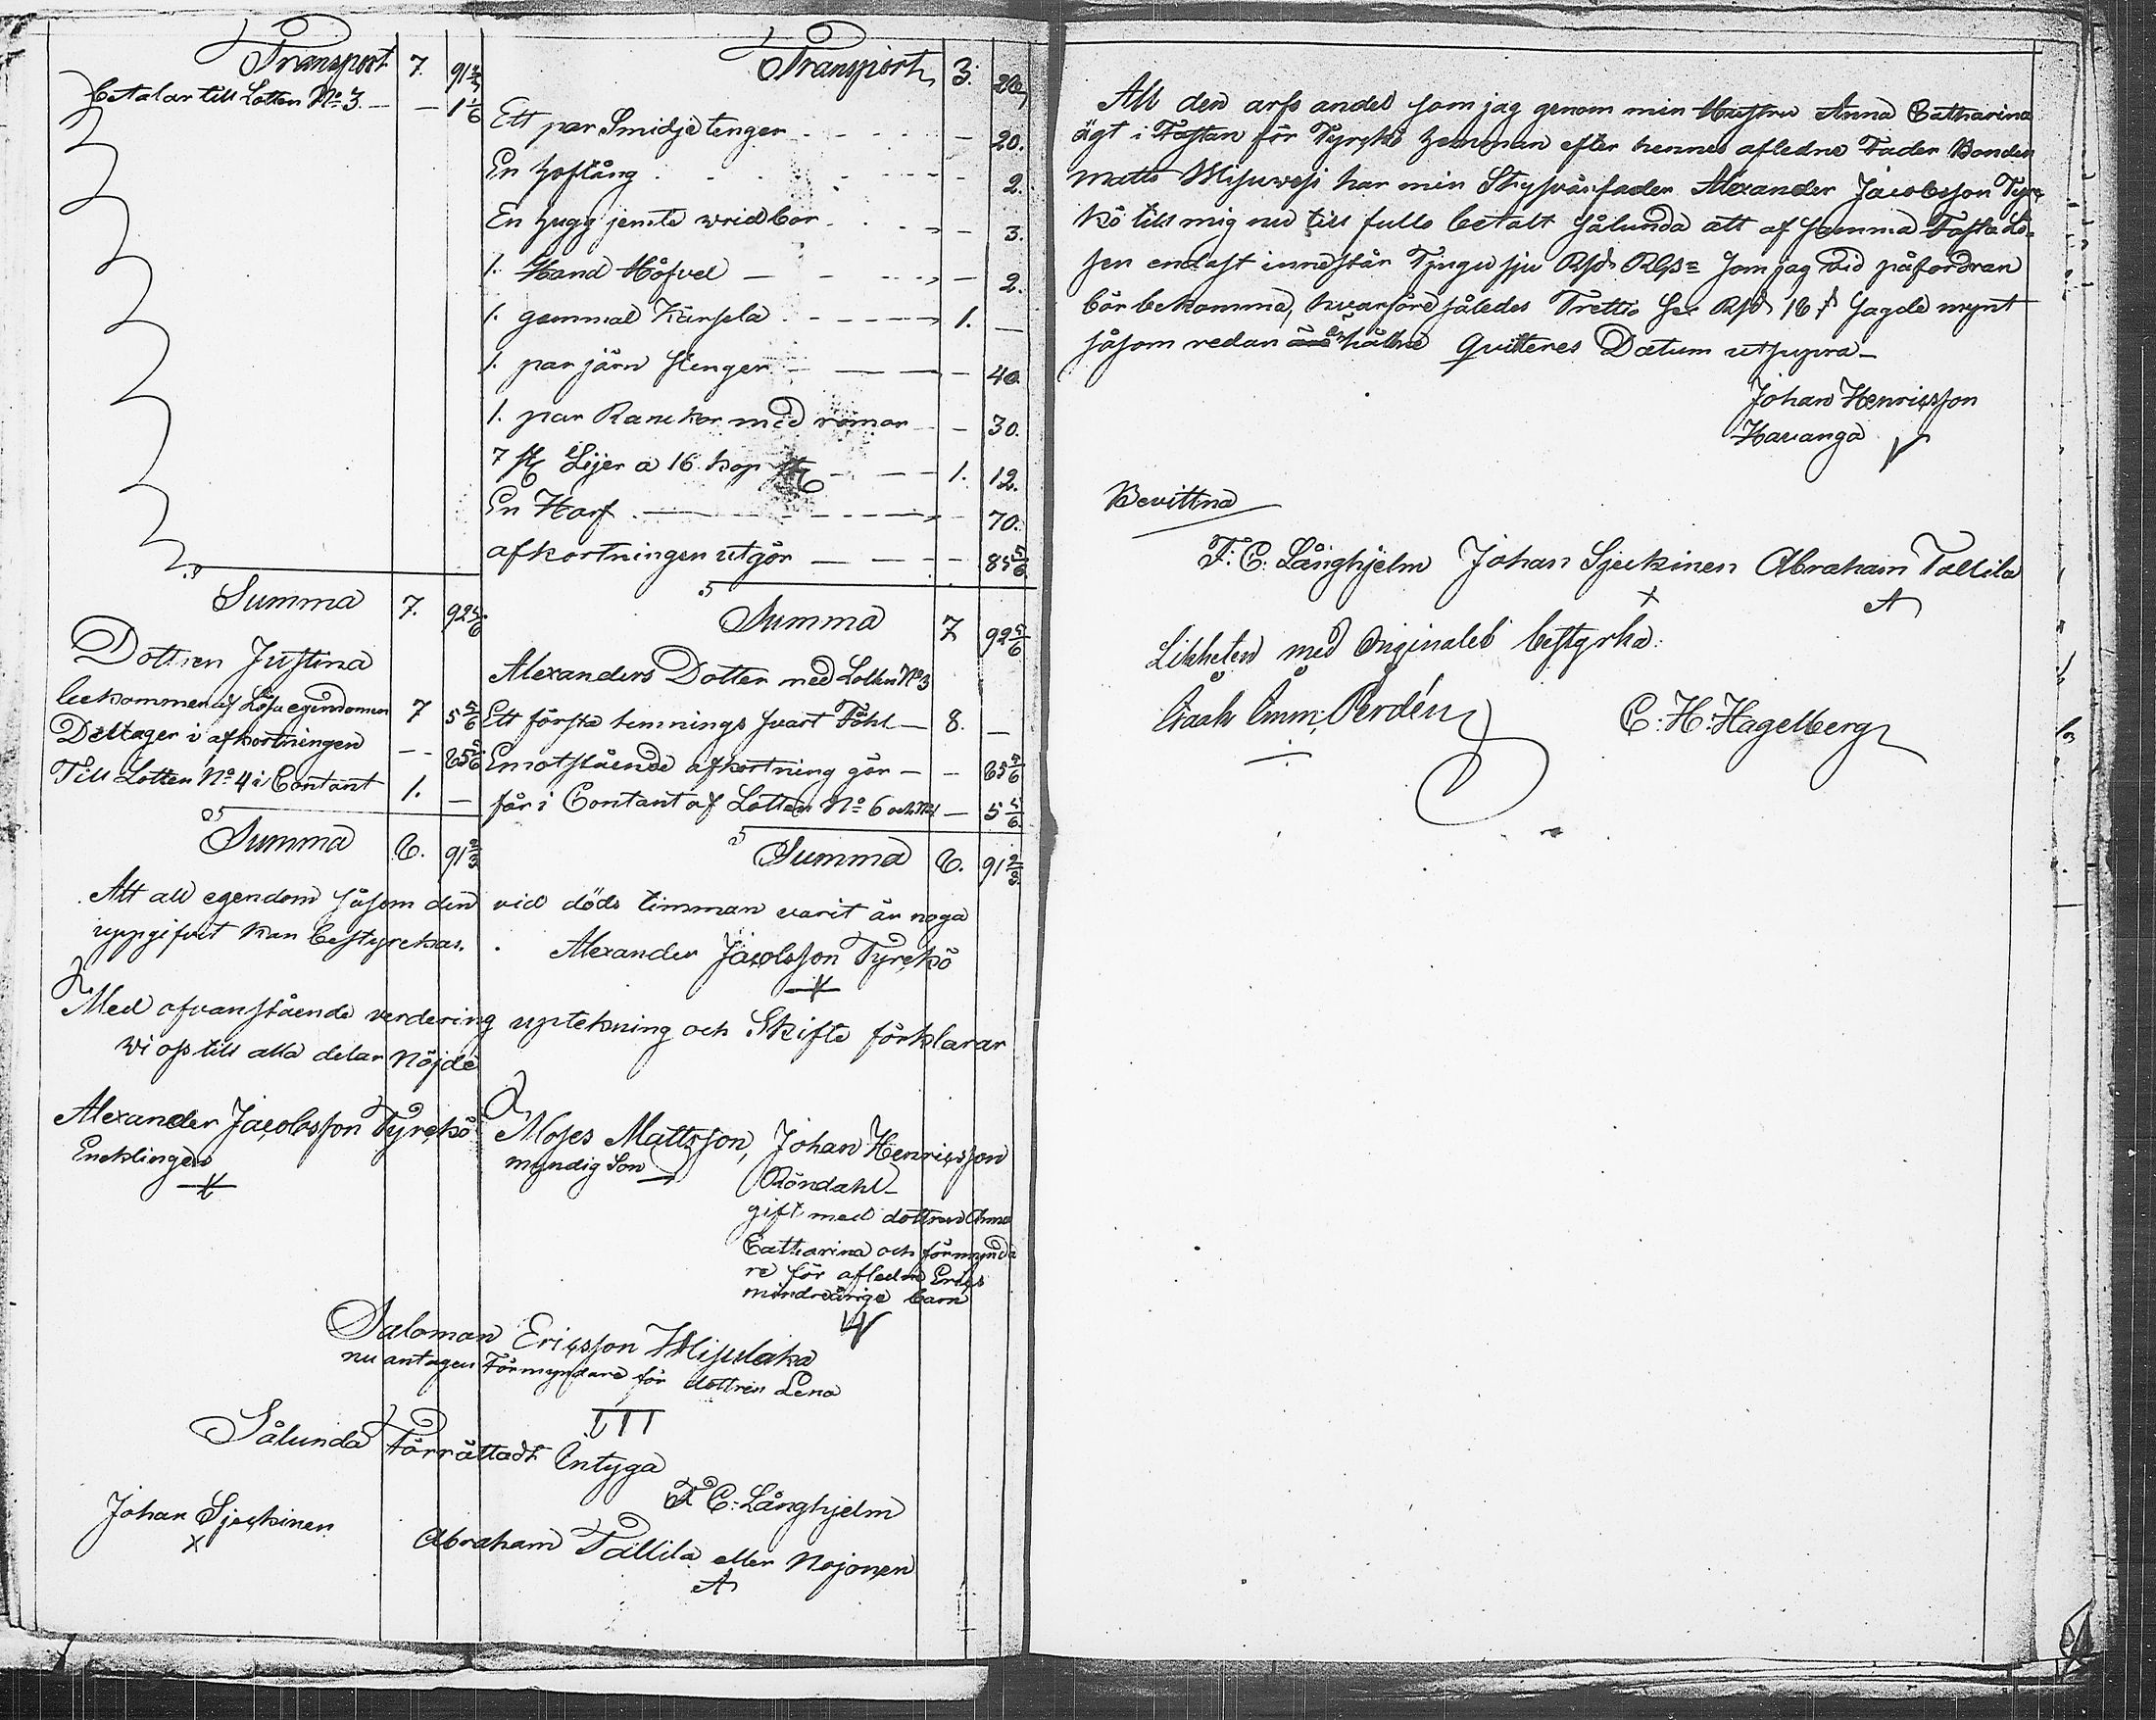 Transport 7. 91 2/3
betalar till Lotten No 3. — — 1 1/6
Summa 7. 92 5/6
Dottren Justina
bekommer af Lösa egendomen 7 5 5/6
Deltager i afkortningen — 85 5/6
Till Lotten No 4 i Contant 1. —
Summa 8. 91 2/3
Transport 3. 26
Ett par Smidje tenger — 20.
En hoftång — 2.
En hugg jemte vridbor — 3.
1. Hand Höfvel — 2.
1. gammal Kärsela 1. —
1. par järn stenger — 40.
1. par med römar — 30.
7 st Lijer a 16 kop st 1. 12.
En Harf — 70.
afkortningen utgör — 85 5/6
Summa 7 92 5/6
Alexanders Dotter med Lotten No 3
Ett första temnings svart Föhl — 8. —
Emotstående afkortning gör — — 85 5/6
får i Contant af Lotten No 6 och No 1 — 5 5/6
Summa 8. 91 2/3
Att all egendom såsom den vid döds timman varit är noga
uppgifvit kan bestyrckas.
Alexander Jacobsson Tyrckö
Med ofvanstående verdering uptekning och Skifte förklarar
Wi oss till alla delar Nöjde
Alexander Jacobsson Tyrckö
Encklingen
Moses Mattsson,
myndig Son
Johan Henricsson
Röndahl
gift med dottren Anna
Catharina och förmynda
re för afledne Erics
mindreårige barn
Saloman Ericsson
nu antagen Förmyndare för dottren Lena
Sålunda Förrättadt Intyga
F. C. Långhjelm
Johan Sjeckinen
X
Abraham Tallila eller Nojonen
A
All den arfs andel som jag genom min Hustru Anna Catharina
ägt i Fastan för Tyrckö hemman efter hennes afledne Fader Bonden
Matts har min Styfsvärfader Alexander Jacobsson Tyrc
kö till mig nu till fullo betalt sålunda att af samma Fasta Lö-
sen endast innestår Tjugu sju Rbl som jag vid påfordran
bör bekomma, hvarföre således Trettio sex 16 s sagde mynt
såsom redan erhållne Quitteres Datum utsupra —
Johan Henricsson
Havanga
Bevittna
F. C. Långhjelm Johan Sjeckinen Abraham Tallila
X A
Likheten med Originalet bestyrka:
Isaak Emm: Perdén C: H: Hagelberg